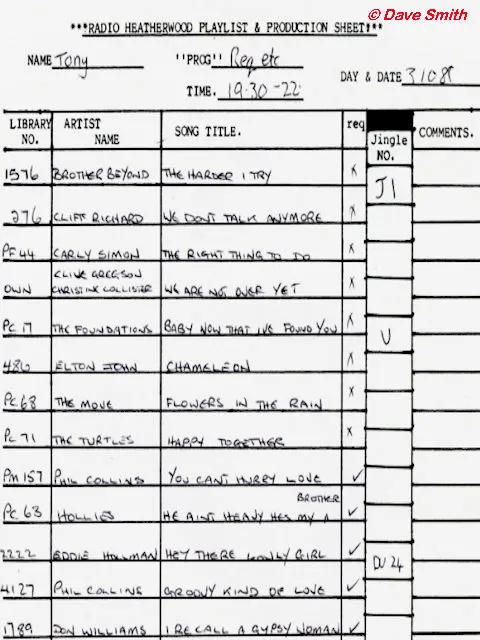 © Dave Smith
***RADIO HEATHERWOOD PLAYLIST & PRODUCTION SHEET***
NAME Tony "PROG" Req etc DAY & DATE 31088
TIME. 19.30 - 22
LIBRARY NO. ARTIST NAME SONG TITLE. req Jingle NO. COMMENTS.
1576 BROTHER BEYOND THE HARDER I TRY x J1
276 CLIFF RICHARD WE DONT TALK ANYMORE x
PF 44 CARLY SIMON THE RIGHT THING TO DO x
OWN CLIVE GREGSON CHRISTINE COLLISTER WE ARE NOT OVER YET x
PC 17 THE FOUNDATIONS BABY NOW THAT IVE FOUND YOU x U
486 ELTON JOHN CHAMELEON x
PC 68 THE MOVE FLOWERS IN THE RAIN x
PC 71 THE TURTLES HAPPY TOGETHER x
PM 157 PHIL COLLINS YOU CANT HURRY LOVE ✓
PC 63 HOLLIES HE AINT HEAVY HES MY BROTHER ✓
2222 EDDIE HOLLMAN HEY THERE LONLY GIRL ✓ DU 24
4127 PHIL COLLINS GROOVY KIND OF LOVE ✓
1789 DON WILLIAMS I RECALL A GYPSY WOMAN ✓